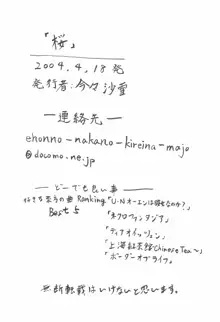 「桜」
2004.4.18発
発行者:今々沙雪
―連絡先―
ehonno-nakano-kireina-majo
@docomo.ne.jp
―どーでも良い事―
好きな東方の曲Ranking
Best 5
「U.Nオーエンは彼女なのか?」
「ネクロファンタジア」
「ティアオイエツォン」
「上海紅茶館〜Chinese Tea〜」
「ボーダーオブライフ」
無断転載はいけないと思います。